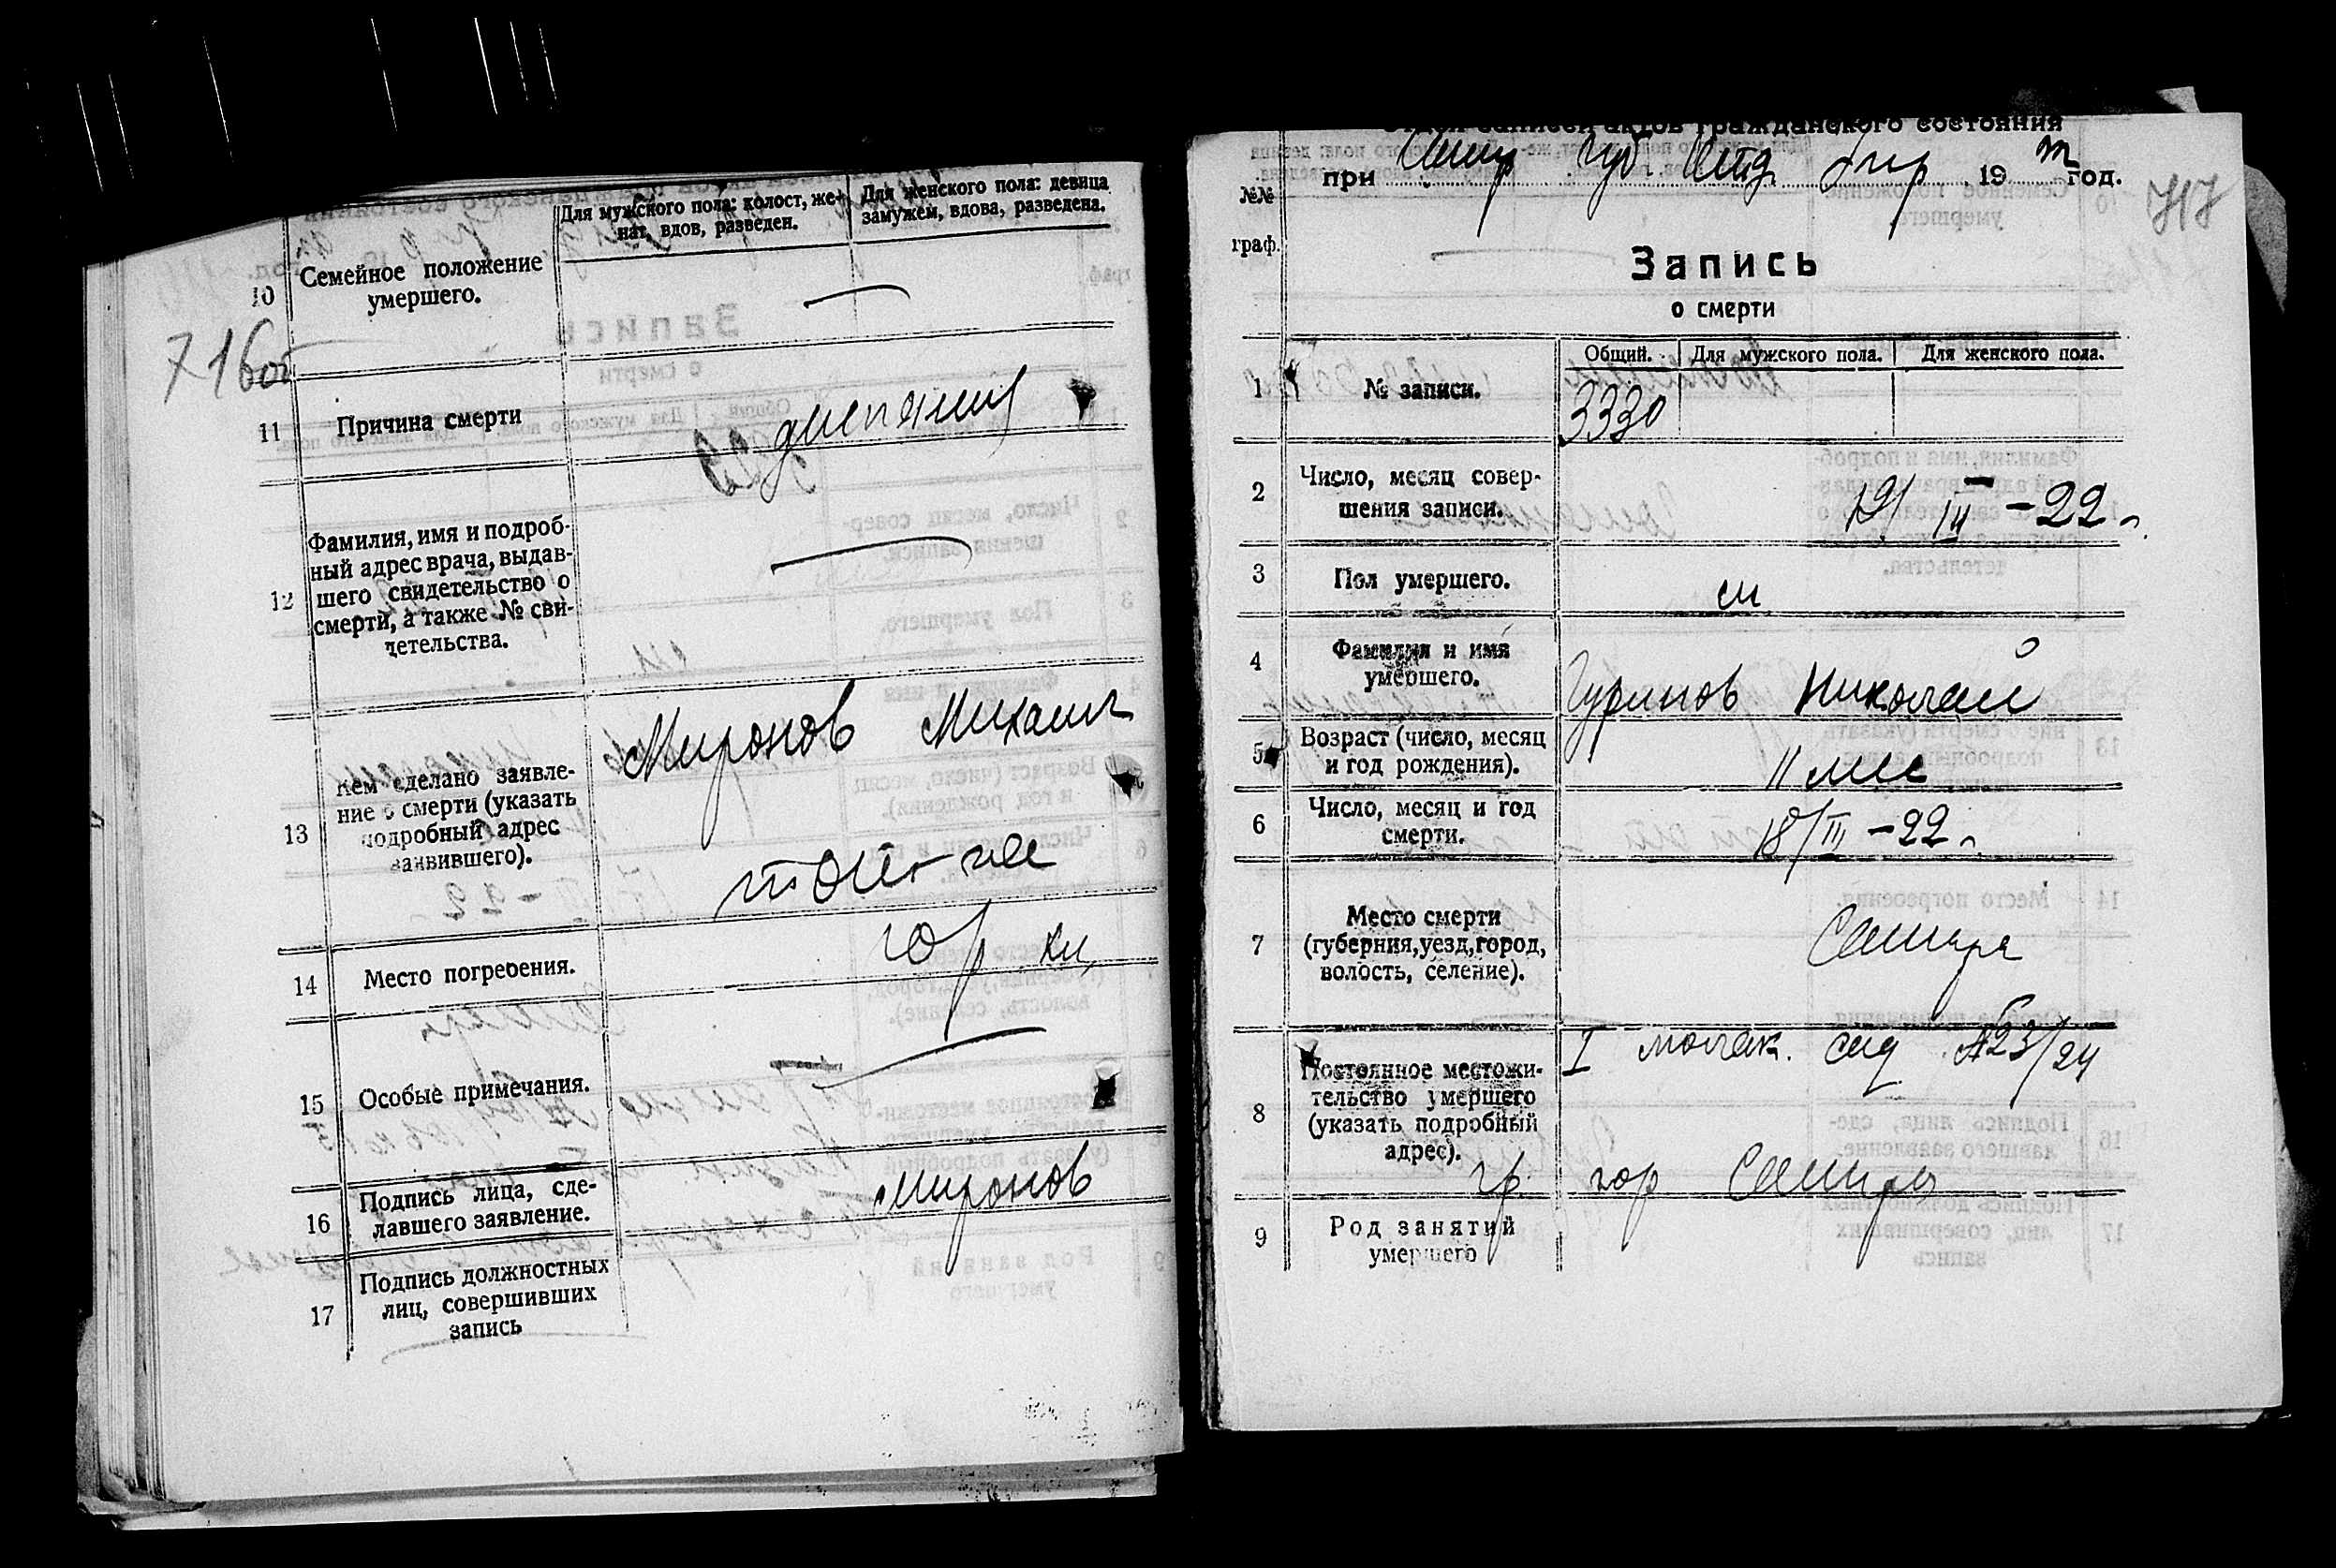 10
Семейное положение
умершего.
Для мужского пола: холост, же-
нат, вдов, разведен.
Для женского пола: девица
замужем, вдова, разведена.
716об
11
Причина смерти
12
Фамилия, имя и подроб-
ный адрес врача, выдав-
шего свидетельство о
смерти, а также № сви-
детельства.
13
Кем сделано заявле-
ние о смерти (указать
подробный адрес
заявившего).
Миронов Михаил
14
Место погребения.
гор кл,
15
Особые примечания.
16
Подпись лица, сде-
лавшего заявление.
Миронов
17
Подпись должностных
лиц, совершивших
запись
Отдел записей актов гражданского состояния
при Губ. Отд. Упр 19 год.
717
№№
граф.
Запись
о смерти
Общий. Для мужского пола. Для женского пола.
1
№ записи.
3330
2
Число, месяц совер-
шения записи.
19/III-22 г.
3
Пол умершего.
м
4
Фамилия и имя
умершего.
Гуринов Николай
5
Возраст (число, месяц
и год рождения).
11 мес
6
Число, месяц и год
смерти.
18/III-22 г.
7
Место смерти
(губерния, уезд, город,
волость, селение).
Самара
8
Постоянное местожи-
тельство умершего
(указать подробный
адрес).
I молак. сад №23/24
гр. гор Самары
9
Род занятий
умершего